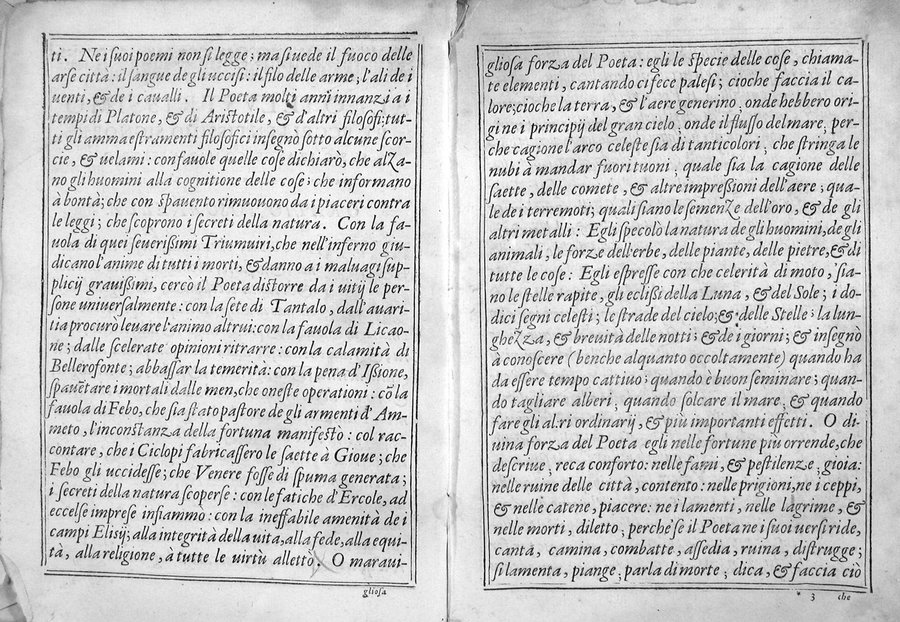 ti. Ne i suoi poemi non si legge; ma si uede il fuoco delle
arse città: il sangue de gli uccisi: il filo delle arme; l'ali de i
uenti, & de i caualli. Il Poeta molti anni innanzi a i
tempi di Platone, & di Aristotile, & d'altri filosofi; tut-
ti gli ammaestramenti filosofici insegnò sotto alcune scor-
cie, & uelami: con fauole quelle cose dichiarò, che alza-
no gli huomini alla cognitione delle cose; che informano
à bontà; che con spauento rimuouono da i piaceri contra
le leggi; che scoprono i secreti della natura. Con la fa-
uola di quei seuerissimi Triumuiri, che nell'inferno giu-
dicano l'anime di tutti i morti, & danno a i maluagi sup-
plicij grauissimi, cercò il Poeta distorre da i uitij le per-
sone uniuersalmente: con la sete di Tantalo, dall'auari-
tia procurò leuare l'animo altrui: con la fauola di Licao-
ne; dalle scelerate opinioni ritrarre: con la calamità di
Bellerofonte; abbassar la temerità: con la pena d'Issione,
spauētare i mortali dalle men, che oneste operationi: cō la
fauola di Febo, che sia stato pastore de gli armenti d'Am-
meto, l'inconstanza della fortuna manifestò: col rac-
contare, che i Ciclopi fabricassero le saette à Gioue; che
Febo gli uccidesse; che Venere fosse di spuma generata;
i secreti della natura scoperse: con le fatiche d'Ercole, ad
eccelse imprese infiammò: con la ineffabile amenità de i
campi Elisij; alla integrità della uita, alla fede, alla equi-
tà, alla religione, à tutte le uirtù allettò. O maraui-
gliosa
gliosa forza del Poeta: egli le specie delle cose, chiama-
te elementi, cantando ci fece palesi; cioche faccia il ca-
lore; cioche la terra, & l'aere generino, onde hebbero ori-
gine i principij del gran cielo, onde il flusso del mare, per-
che cagione l'arco celeste sia di tanti colori, che stringa le
nubi à mandar fuori tuoni, quale sia la cagione delle
saette, delle comete, & altre impressioni dell'aere; qua-
le de i terremoti; quali siano le semenze dell'oro, & de gli
altri metalli: Egli specolò la natura de gli huomini, de gli
animali, le forze dell'erbe, delle piante, delle pietre, & di
tutte le cose: Egli espresse con che celerità di moto, sia-
no le stelle rapite, gli eclissi della Luna, & del Sole; i do-
dici segni celesti; le strade del cielo; & delle Stelle: la lun-
ghezza, & breuità delle notti; & de i giorni; & insegnò
à conoscere (benche alquanto occoltamente) quando ha
da essere tempo cattiuo; quando è buon seminare; quan-
do tagliare alberi, quando solcare il mare, & quando
fare gli altri ordinarij, & più importanti effetti. O di-
uina forza del Poeta egli nelle fortune più orrende, che
descriue, reca conforto: nelle fami, & pestilenze, gioia:
nelle ruine delle città, contento: nelle prigioni, ne i ceppi,
& nelle catene, piacere: ne i lamenti, nelle lagrime, &
nelle morti, diletto, perche se il Poeta ne i suoi uersi ride,
canta, camina, combatte, assedia, ruina, distrugge;
si lamenta, piange, parla di morte; dica, & faccia ciò
* 3 che